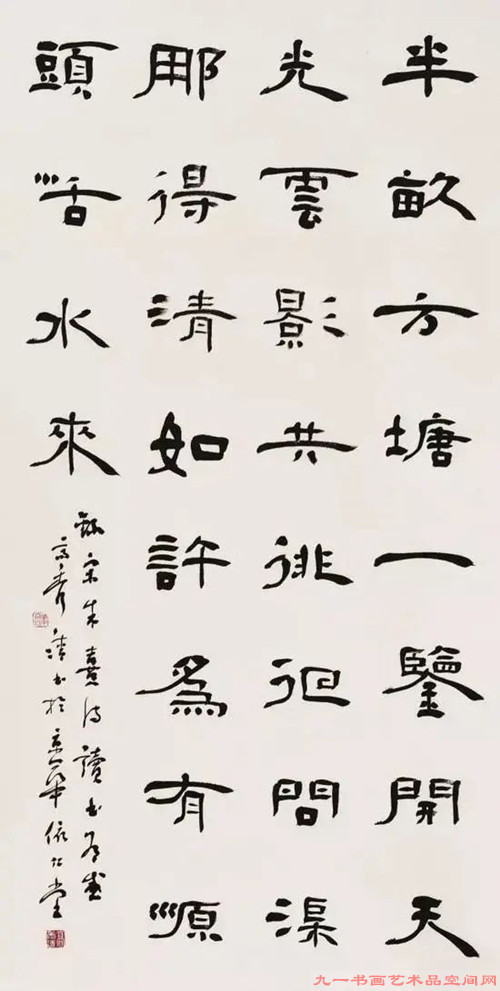 半畝方塘一鑒開天
光雲影共徘徊問渠
那得清如許爲有源
頭活水來
錄宋朱熹詩讀書有感
高秀清書於京華依仁堂
九一书画艺术品空间网